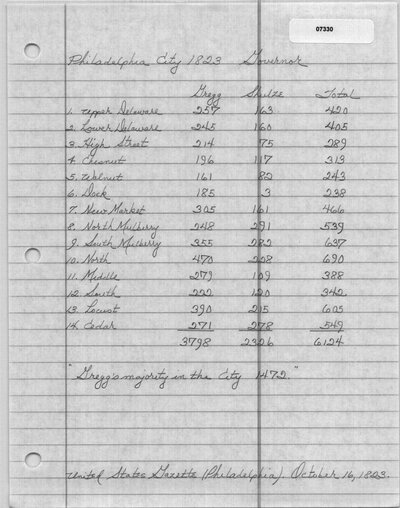 07330
Philadelphia City 1823 Governor
Gregg Shulze Total
1. Upper Delaware 257 163 420
2. Lower Delaware 245 160 405
3. High Street 214 75 289
4. Chesnut 196 117 313
5. Walnut 161 82 243
6. Dock 185 53 238
7. New Market 305 161 466
8. North Mulberry 248 291 539
9. South Mulberry 355 282 637
10. North 470 220 690
11. Middle 279 109 388
12. South 222 120 342
13. Locust 390 215 605
14. Cedar 271 278 549
3798 2326 6124
"Gregg's majority in the City 1472."
United States Gazette (Philadelphia). October 16, 1823.